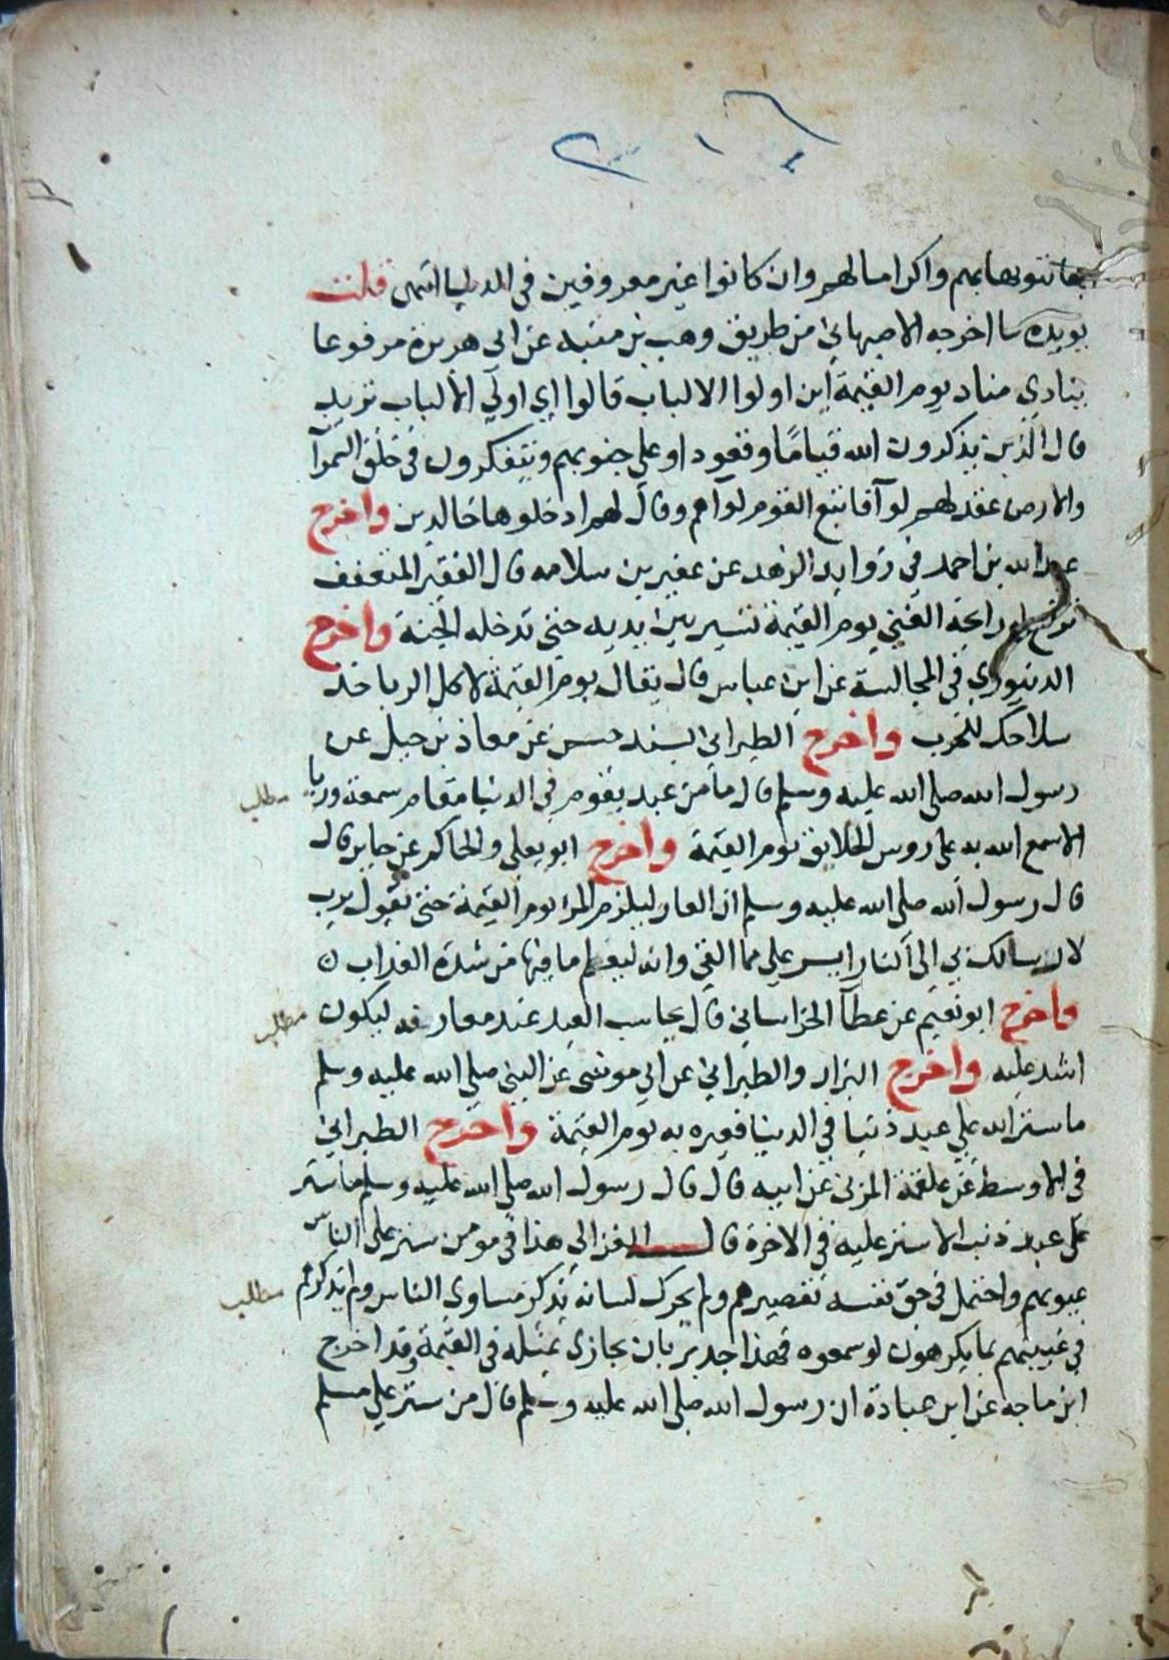 بها تنويها بهم واكراما لهم وان كانوا غير معروفين في الدنيا انتهى قلت
يويده ما اخرجه الاصبهاني من طريق وهب بن منبه عن ابي هريرة مرفوعا
ينادي مناد يوم القيمة اين اولوا الالباب قالوا اي اولي الالباب تريد
قال الذين يذكرون الله قياما وقعودا وعلى جنوبهم ويتفكرون في خلق السموآ
والارض عقد لهم لوآ فاتبع القوم لواهم وقال لهم ادخلوها خالدين واخرج
عبد الله بن احمد في زوايد الزهد عن عفير بن سلامه قال الفقير المتعفف
رايحة الغني يوم القيمة تسير بين يديه حتى تدخله الجنة واخرج
الدينوري في المجالسة عن ابن عباس قال يقال يوم القيمة لاكل الربا خذ
سلاحك للحرب واخرج الطبراني بسند حسن عن معاذ بن جبل عن
رسول الله صلى الله عليه وسلم قال ما من عبد يقوم في الدنيا مقام سمعة وريا
مطلب
الا سمع الله به على روس الخلايق يوم القيمة واخرج ابو يعلي والحاكم عن جابر قال
قال رسول الله صلى الله عليه وسلم ان العار ليلزم المرء يوم القيمة حتى يقول يرب
لارسالك بي الى النار ايسر علي مما القي وانه ليعلم ما فيها من شدة العذاب
واخرج ابو نعيم عن عطآ الخراساني قال يحاسب العبد عند معارفه ليكون
مطلب
اشد عليه واخرج البزار والطبراني عن ابي موسى عن النبي صلى الله عليه وسلم
ما ستر الله علي عبد ذنبا في الدنيا فعيره به يوم القيمة واخرج الطبراني
في الاوسط عن علقمة المزني عن ابيه قال قال رسول الله صلى الله عليه وسلم ما ستر
على عبد ذنب الا ستر عليه في الاخرة قال الغزالي هذا في مومن ستر على الناس
عيوبهم واحتمل في حق نفسه تقصيرهم ولم يحرك لسانه بذكر مساوي الناس ولم يذكرهم
مطلب
في غيبتهم بما يكرهون لو سمعوه فهذا جدير بان يجازى بمثله في القيمة وقد اخرج
ابن ماجه عن ابن عبادة ان رسول الله صلى الله عليه وسلم قال من ستر على مسلم